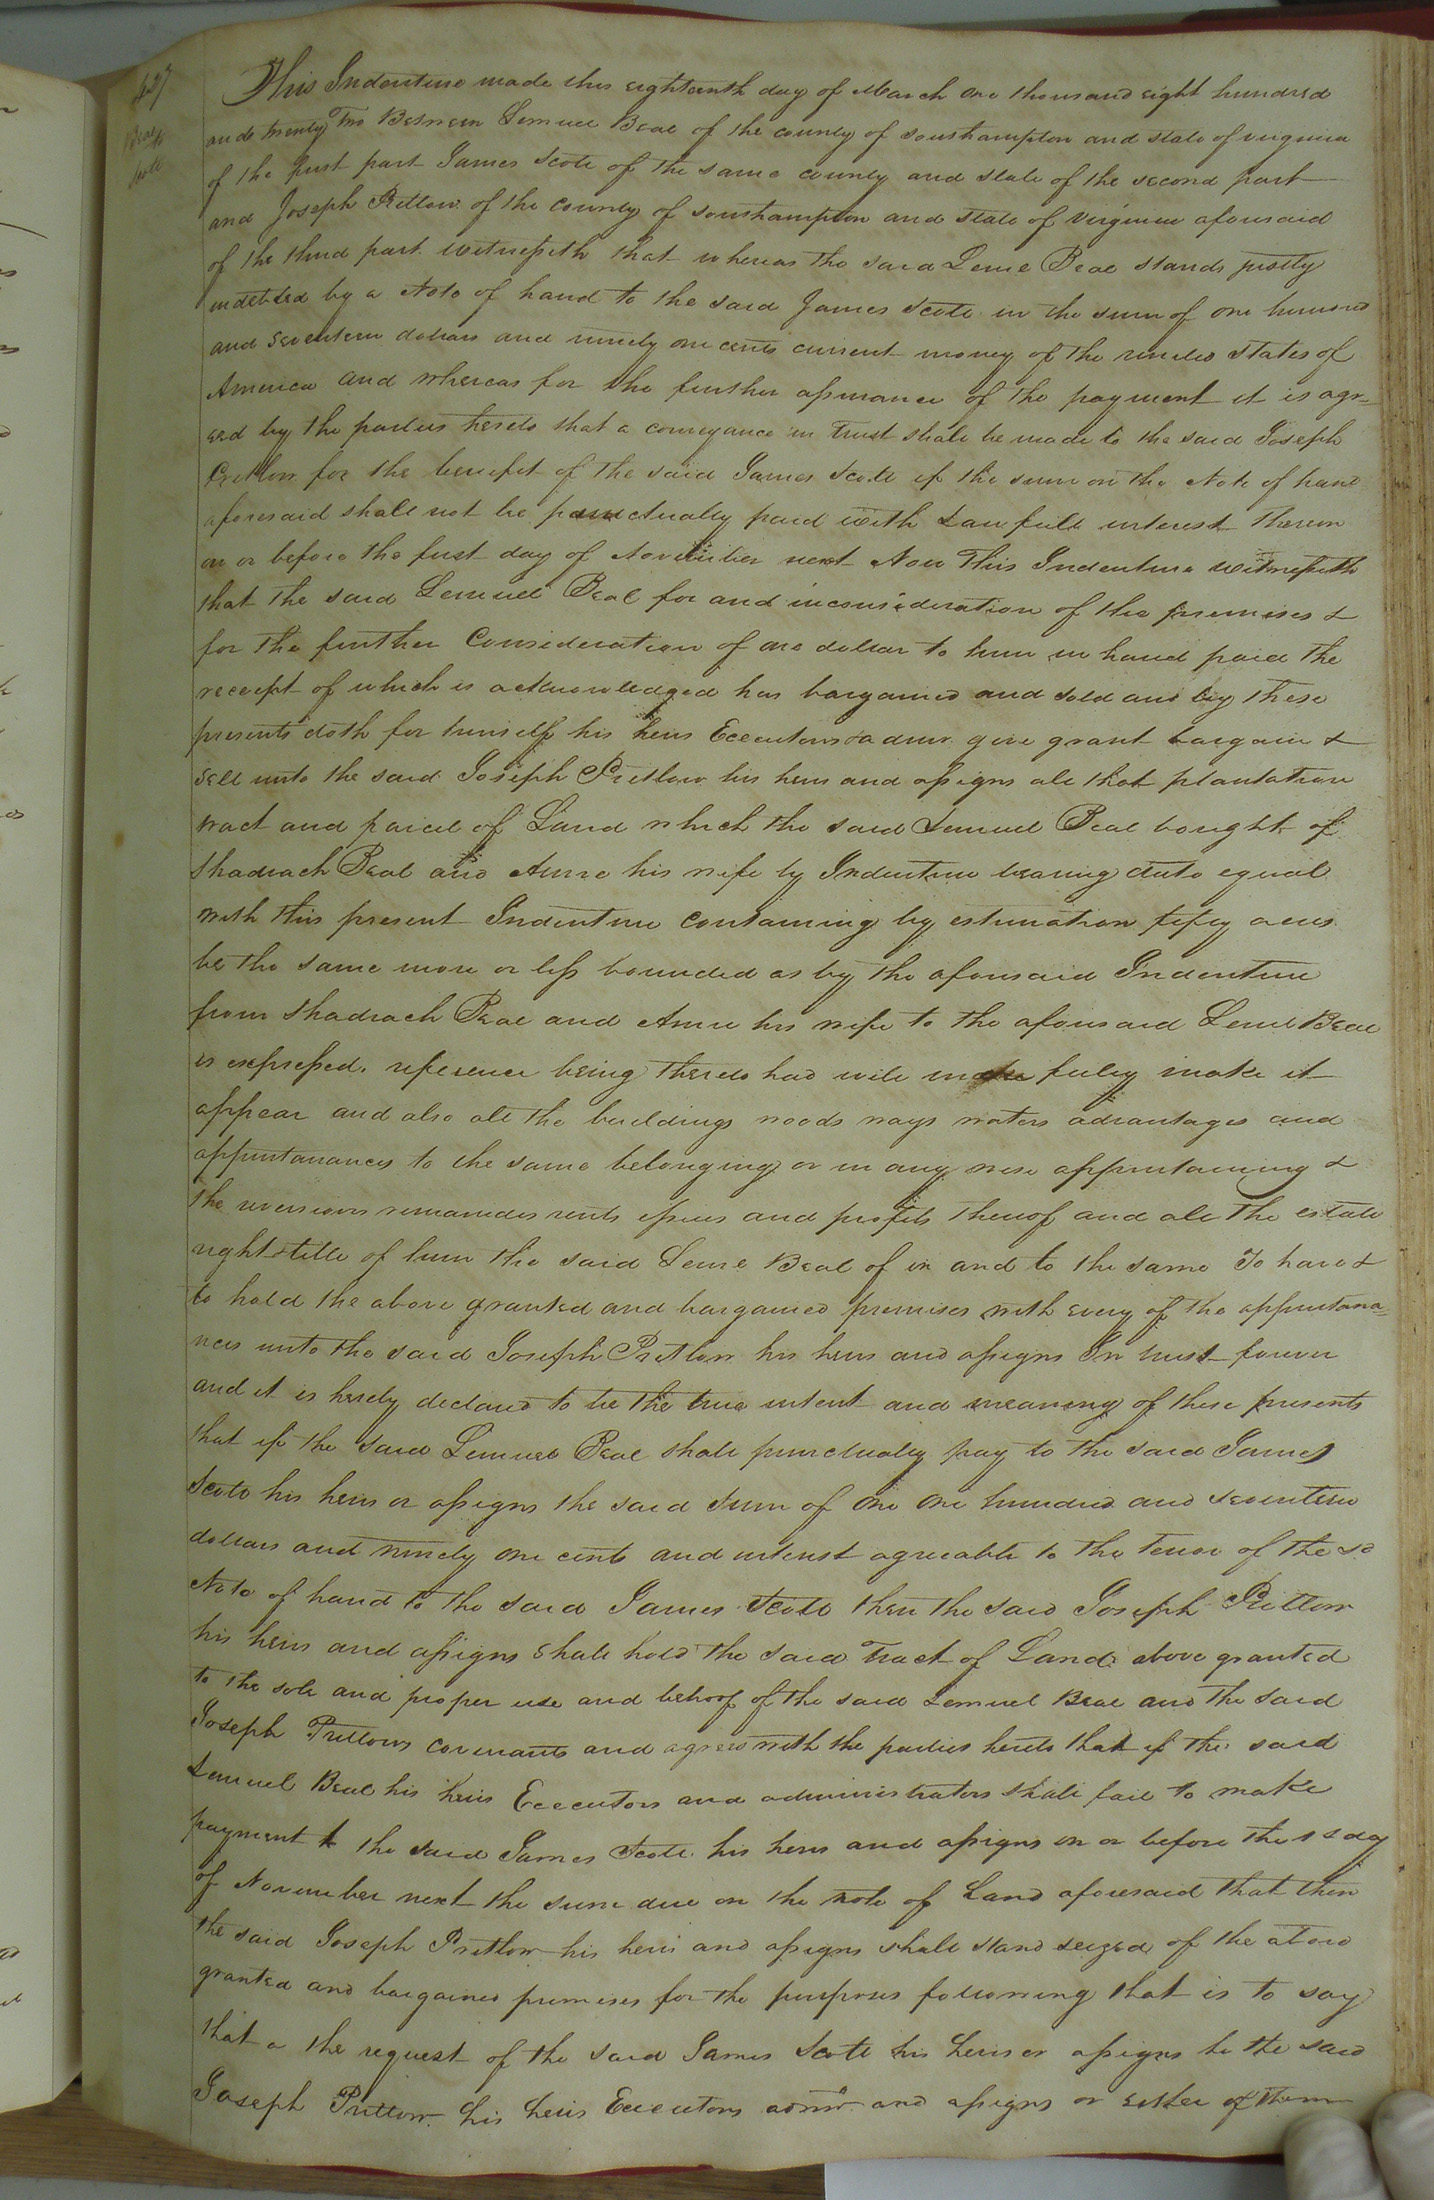 427
Beal
to
Scott
This Indenture made this eighteenth day of March one thousand eight hundred
and twenty Two Between Lemuel Beal of the county of Southampton and state of virginia
of the first part James Scott of the same county and state of the second part
and Joseph Pretlow of the county of Southampton and state of virginia aforesaid
of the third part. witnesseth that whereas the said Leml Beal stands justly
indebted by a Note of hand to the said James Scott in the sum of one hundred
and seventeen dollars and ninety one cents current money of the united states of
America and whereas for the further assurance of the payment it is agr=
eed by the parties hereto that a conveyance in trust shall be made to the said Joseph
Pretlow for the benefit of the said James Scott if the sum on the Note of hand
aforesaid shall not be punctually paid with Lawfull interest thereon
on or before the first day of November next Now This Indenture witnesseth
that the said Lemuel Beal for and inconsideration of the premises &
for the further Consideration of one dollar to him in hand paid the
receipt of which is acknowledged has bargained and sold and by these
presents doth for himself his heirs Executors & admr. give grant bargain &
sell unto the said Joseph Pretlow his heirs and assigns all that plantation
tract and parcel of Land which the said Lemuel Beal bought of
Shadrach Beal and his wife by Indenture bearing date equal
with this present Indenture containing by estimation fifty acres
be the same more or less bounded as by the aforesaid Indenture
from Shadrach Beal and his wife to the aforesaid Leml Beal
is expressed. reference being thereto had will fully make it
appear and also all the buildings woods ways waters advantages and
appurtanances to the same belonging or in any wise appurtaining &
the reversions remainders rents issues and profits thereof and all the estate
right & title of him the said Leml Beal of in and to the same To have &
to hold the above granted and bargained premises with every of the appurtana=
nces unto the said Joseph Pretlow his heirs and assigns In trust forever
and it is hereby declared to be the true intent and meaning of these presents
that if the said Lemuel Beal shall punctually pay to the said James
Scott his heirs or assigns the said sum of one one hundred and seventeen
dollars and ninety one cents and interest agreeable to the tenor of the sd
Note of hand to the said James Scott then the said Joseph Pretlow
his heirs and assigns shall hold the said Tract of Land above granted
to the sole and proper use and behoof of the said Lemuel Beal and the said
Joseph Pretlow covenants and agrees with the parties hereto that if the said
Lemuel Beal his heirs Executors and administrators shall fail to make
payment to the said James Scott his heirs and assigns on or before the 1st day
of November next the sum due on the note of Land aforesaid that then
the said Joseph Pretlow his heirs and assigns shall stand seized of the above
granted and bargained premises for the purposes following that is to say
that a the request of the said James Scott his heirs or assigns he the said
Joseph Pretlow his heirs Executors admr. and assigns or either of them